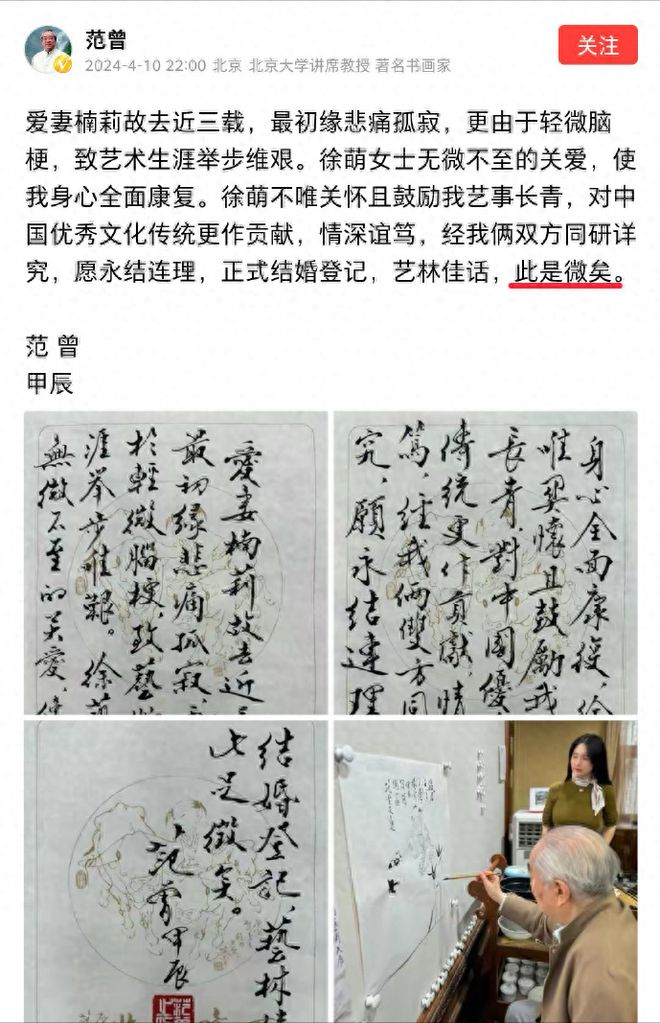 范曾
2024-4-10 22:00 北京 北京大学讲席教授 著名书画家
关注
爱妻楠莉故去近三载，最初缘悲痛孤寂，更由于轻微脑
梗，致艺术生涯举步维艰。徐萌女士无微不至的关爱，使
我身心全面康复。徐萌不唯关怀且鼓励我艺事长青，对中
国优秀文化传统更作贡献，情深谊笃，经我俩双方同研详
究，愿永结连理，正式结婚登记，艺林佳话，此是微矣。
范 曾
甲辰
愛妻楠莉故去近
最初缘悲痛孤寂，
於輕微腦梗，致藝
涯举步唯艱。徐萌
無微不至的关愛，使
身心全面康復，徐
唯关懷且鼓勵我
長青，對中國優
傳統更作貢獻，情
篤，经我俩雙方同
究，願永结連理
结婚登记，藝林佳
此足徵矣。
范曾甲辰